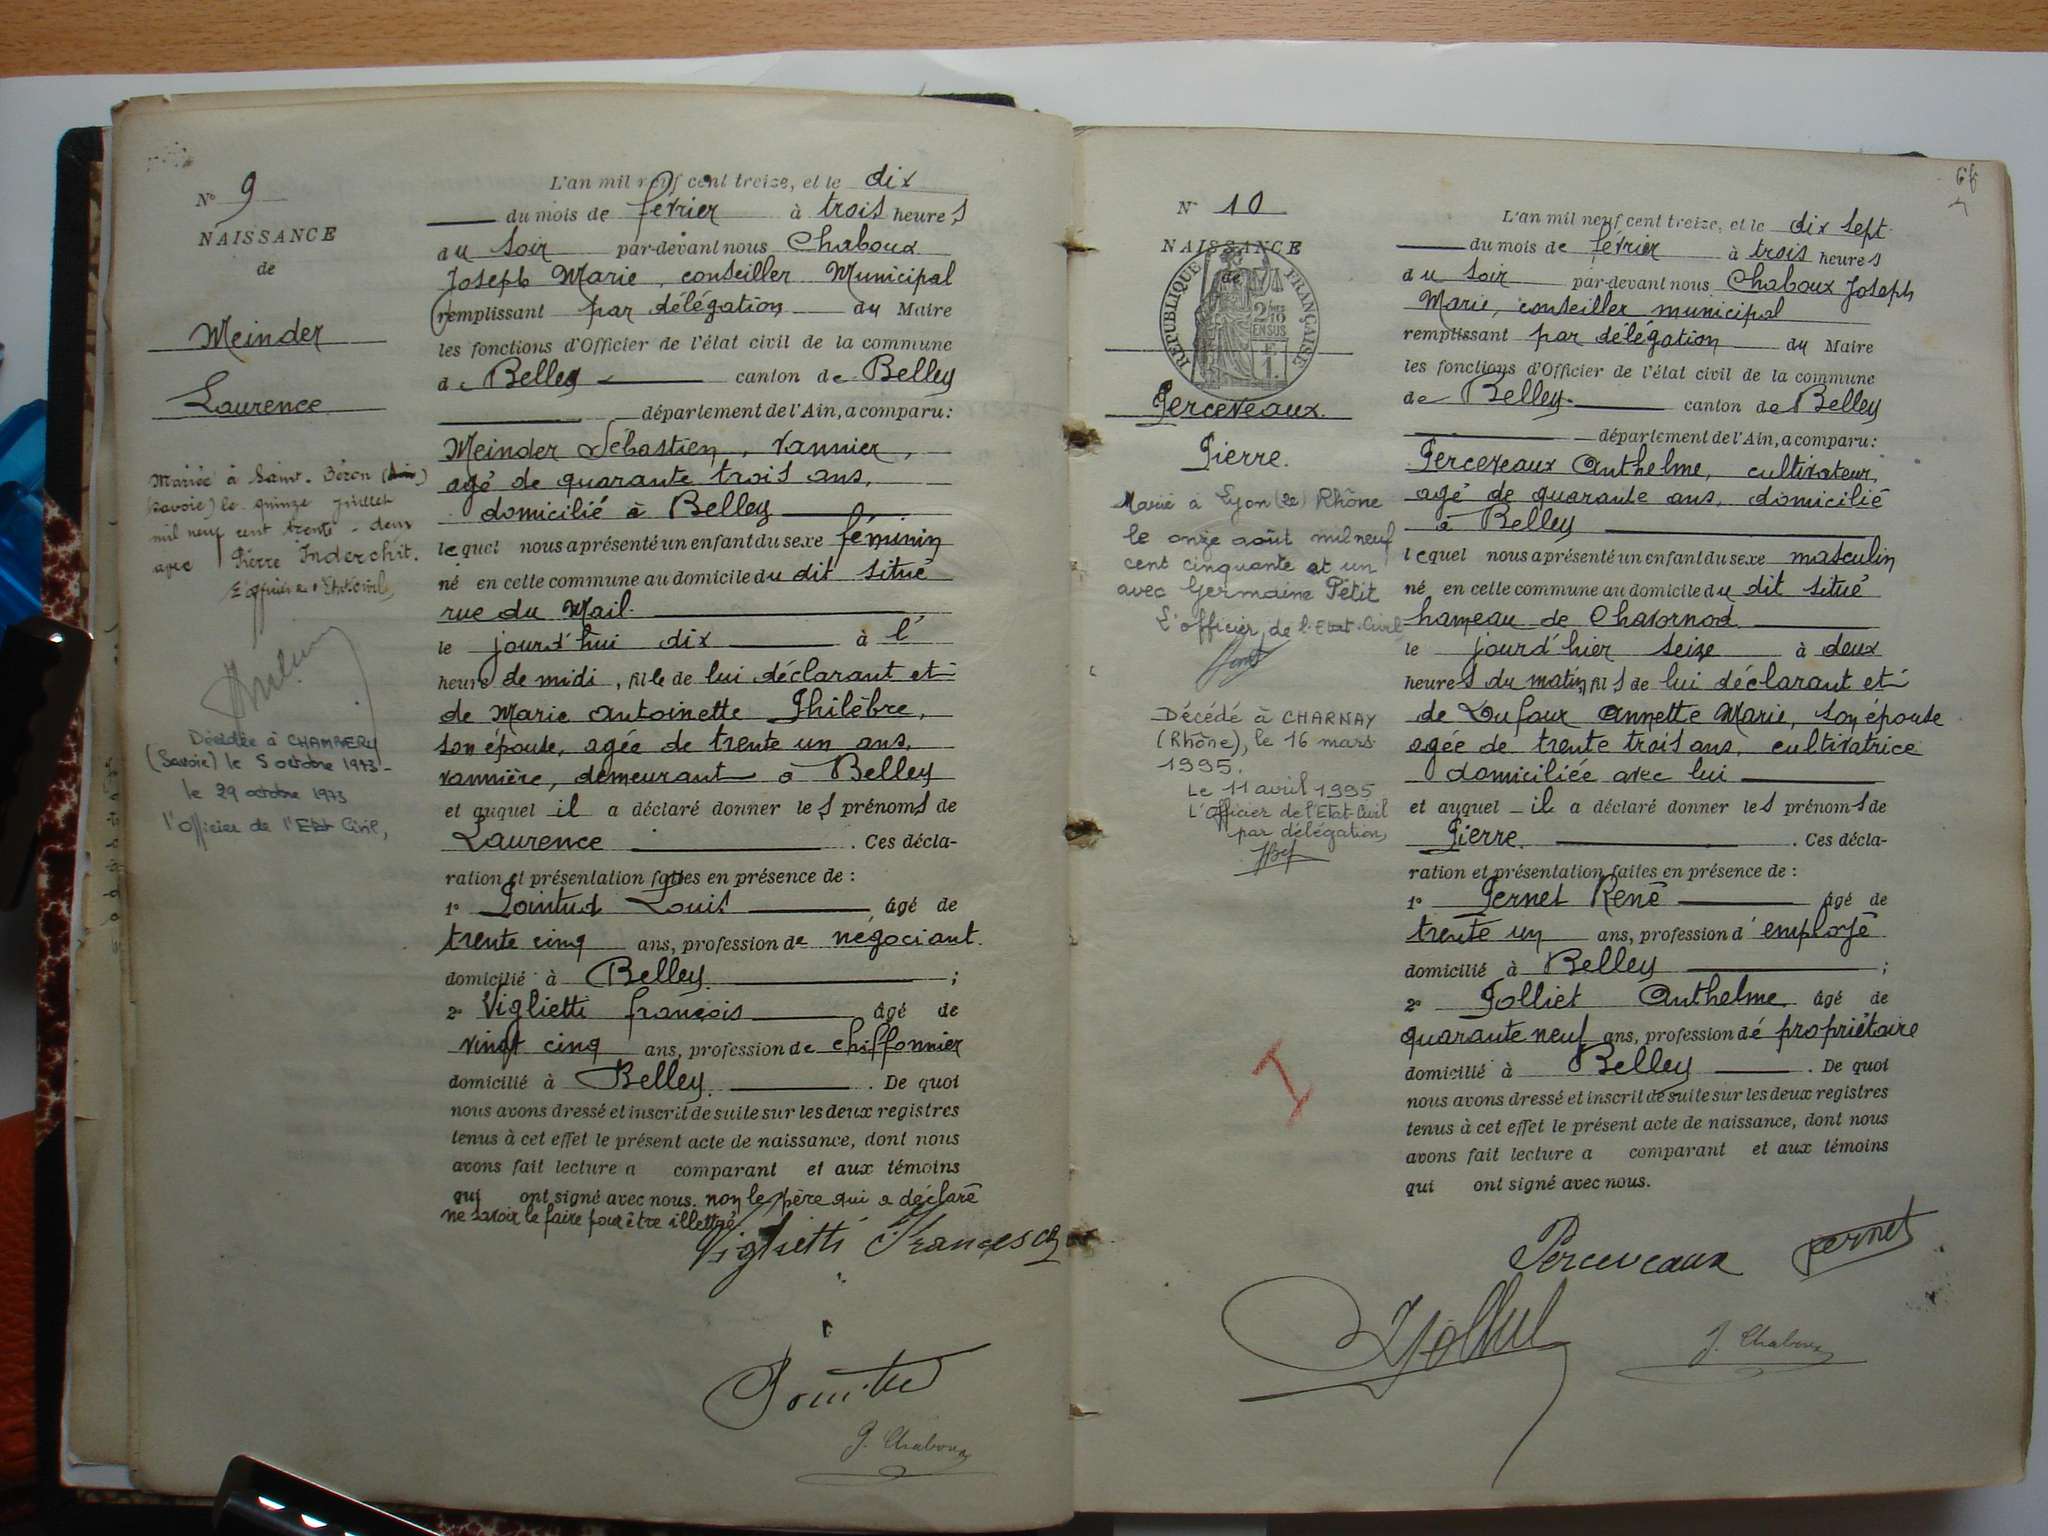 N° 9
NAISSANCE
de
Meinder
Laurence
Mariée à Saint-Béron
(Savoie) le quinze juillet
mil neuf cent trente-deux
avec Pierre Inderchit.
L'officier d'Etat civil,
Décédée à CHAMBERY
(Savoie) le 5 octobre 1973 -
le 29 octobre 1973
l'officier de l'Etat Civil,
L'an mil neuf cent treize, et le dix
du mois de février à trois heures
du soir par-devant nous Chaboux
Joseph Marie, conseiller Municipal
remplissant par délégation du Maire
les fonctions d'Officier de l'état civil de la commune
de Belley canton de Belley
département de l'Ain, a comparu:
Meinder Sébastien, vannier,
agé de quarante trois ans,
domicilié à Belley
lequel nous a présenté un enfant du sexe féminin
né en cette commune au domicile du dit situé
rue du Mail.
le jourd'hui dix à l'
heure de midi, fille de lui déclarant et
de Marie Antoinette Philèbre,
son épouse, agée de trente un ans,
vannière, demeurant à Belley
et auquel il a déclaré donner les prénoms de
Laurence . Ces décla-
ration et présentation faites en présence de:
1° Pointud Louis, âgé de
trente cinq ans, profession de négociant.
domicilié à Belley. ;
2° Viglietti françois âgé de
vingt cinq ans, profession de chiffonnier
domicilié à Belley. . De quoi
nous avons dressé et inscrit de suite sur les deux registres
tenus à cet effet le présent acte de naissance, dont nous
avons fait lecture a comparant et aux témoins
qui ont signé avec nous. non le père qui a déclaré
ne savoir le faire pour être illettré
Viglietti Francesco
J. Chaboux
N° 10
NAISSANCE
de
RÉPUBLIQUE FRANÇAISE
2/10
EN SUS
Perceveaux.
Pierre.
Marié à Lyon (2e) Rhône
le onze août mil neuf
cent cinquante et un
avec Germaine Petit
L'officier de l'Etat-Civil
Décédé à CHARNAY
(Rhône), le 16 mars
1995.
Le 11 avril 1995
L'Officier de l'Etat-Civil
par délégation,
I
L'an mil neuf cent treize, et le dix sept
du mois de février à trois heures
du soir par-devant nous Chaboux Joseph
Marie, conseiller municipal
remplissant par délégation du Maire
les fonctions d'Officier de l'état civil de la commune
de Belley canton de Belley
département de l'Ain, a comparu:
Perceveaux Anthelme, cultivateur,
agé de quarante ans, domicilié
à Belley
lequel nous a présenté un enfant du sexe masculin
né en cette commune au domicile du dit situé
hameau de Chavornod
le jourd'hier seize à deux
heures du matin, fils de lui déclarant et
de Dufour Annette Marie, son épouse
agée de trente trois ans, cultivatrice
domiciliée avec lui
et auquel il a déclaré donner les prénoms de
Pierre. . Ces décla-
ration et présentation faites en présence de:
1° Pernet René âgé de
trente un ans, profession d'employé
domicilié à Belley ;
2° Jolliet Anthelme, âgé de
quarante neuf ans, profession de propriétaire
domicilié à Belley . De quoi
nous avons dressé et inscrit de suite sur les deux registres
tenus à cet effet le présent acte de naissance, dont nous
avons fait lecture a comparant et aux témoins
qui ont signé avec nous.
Perceveaux Pernet
J. Chaboux